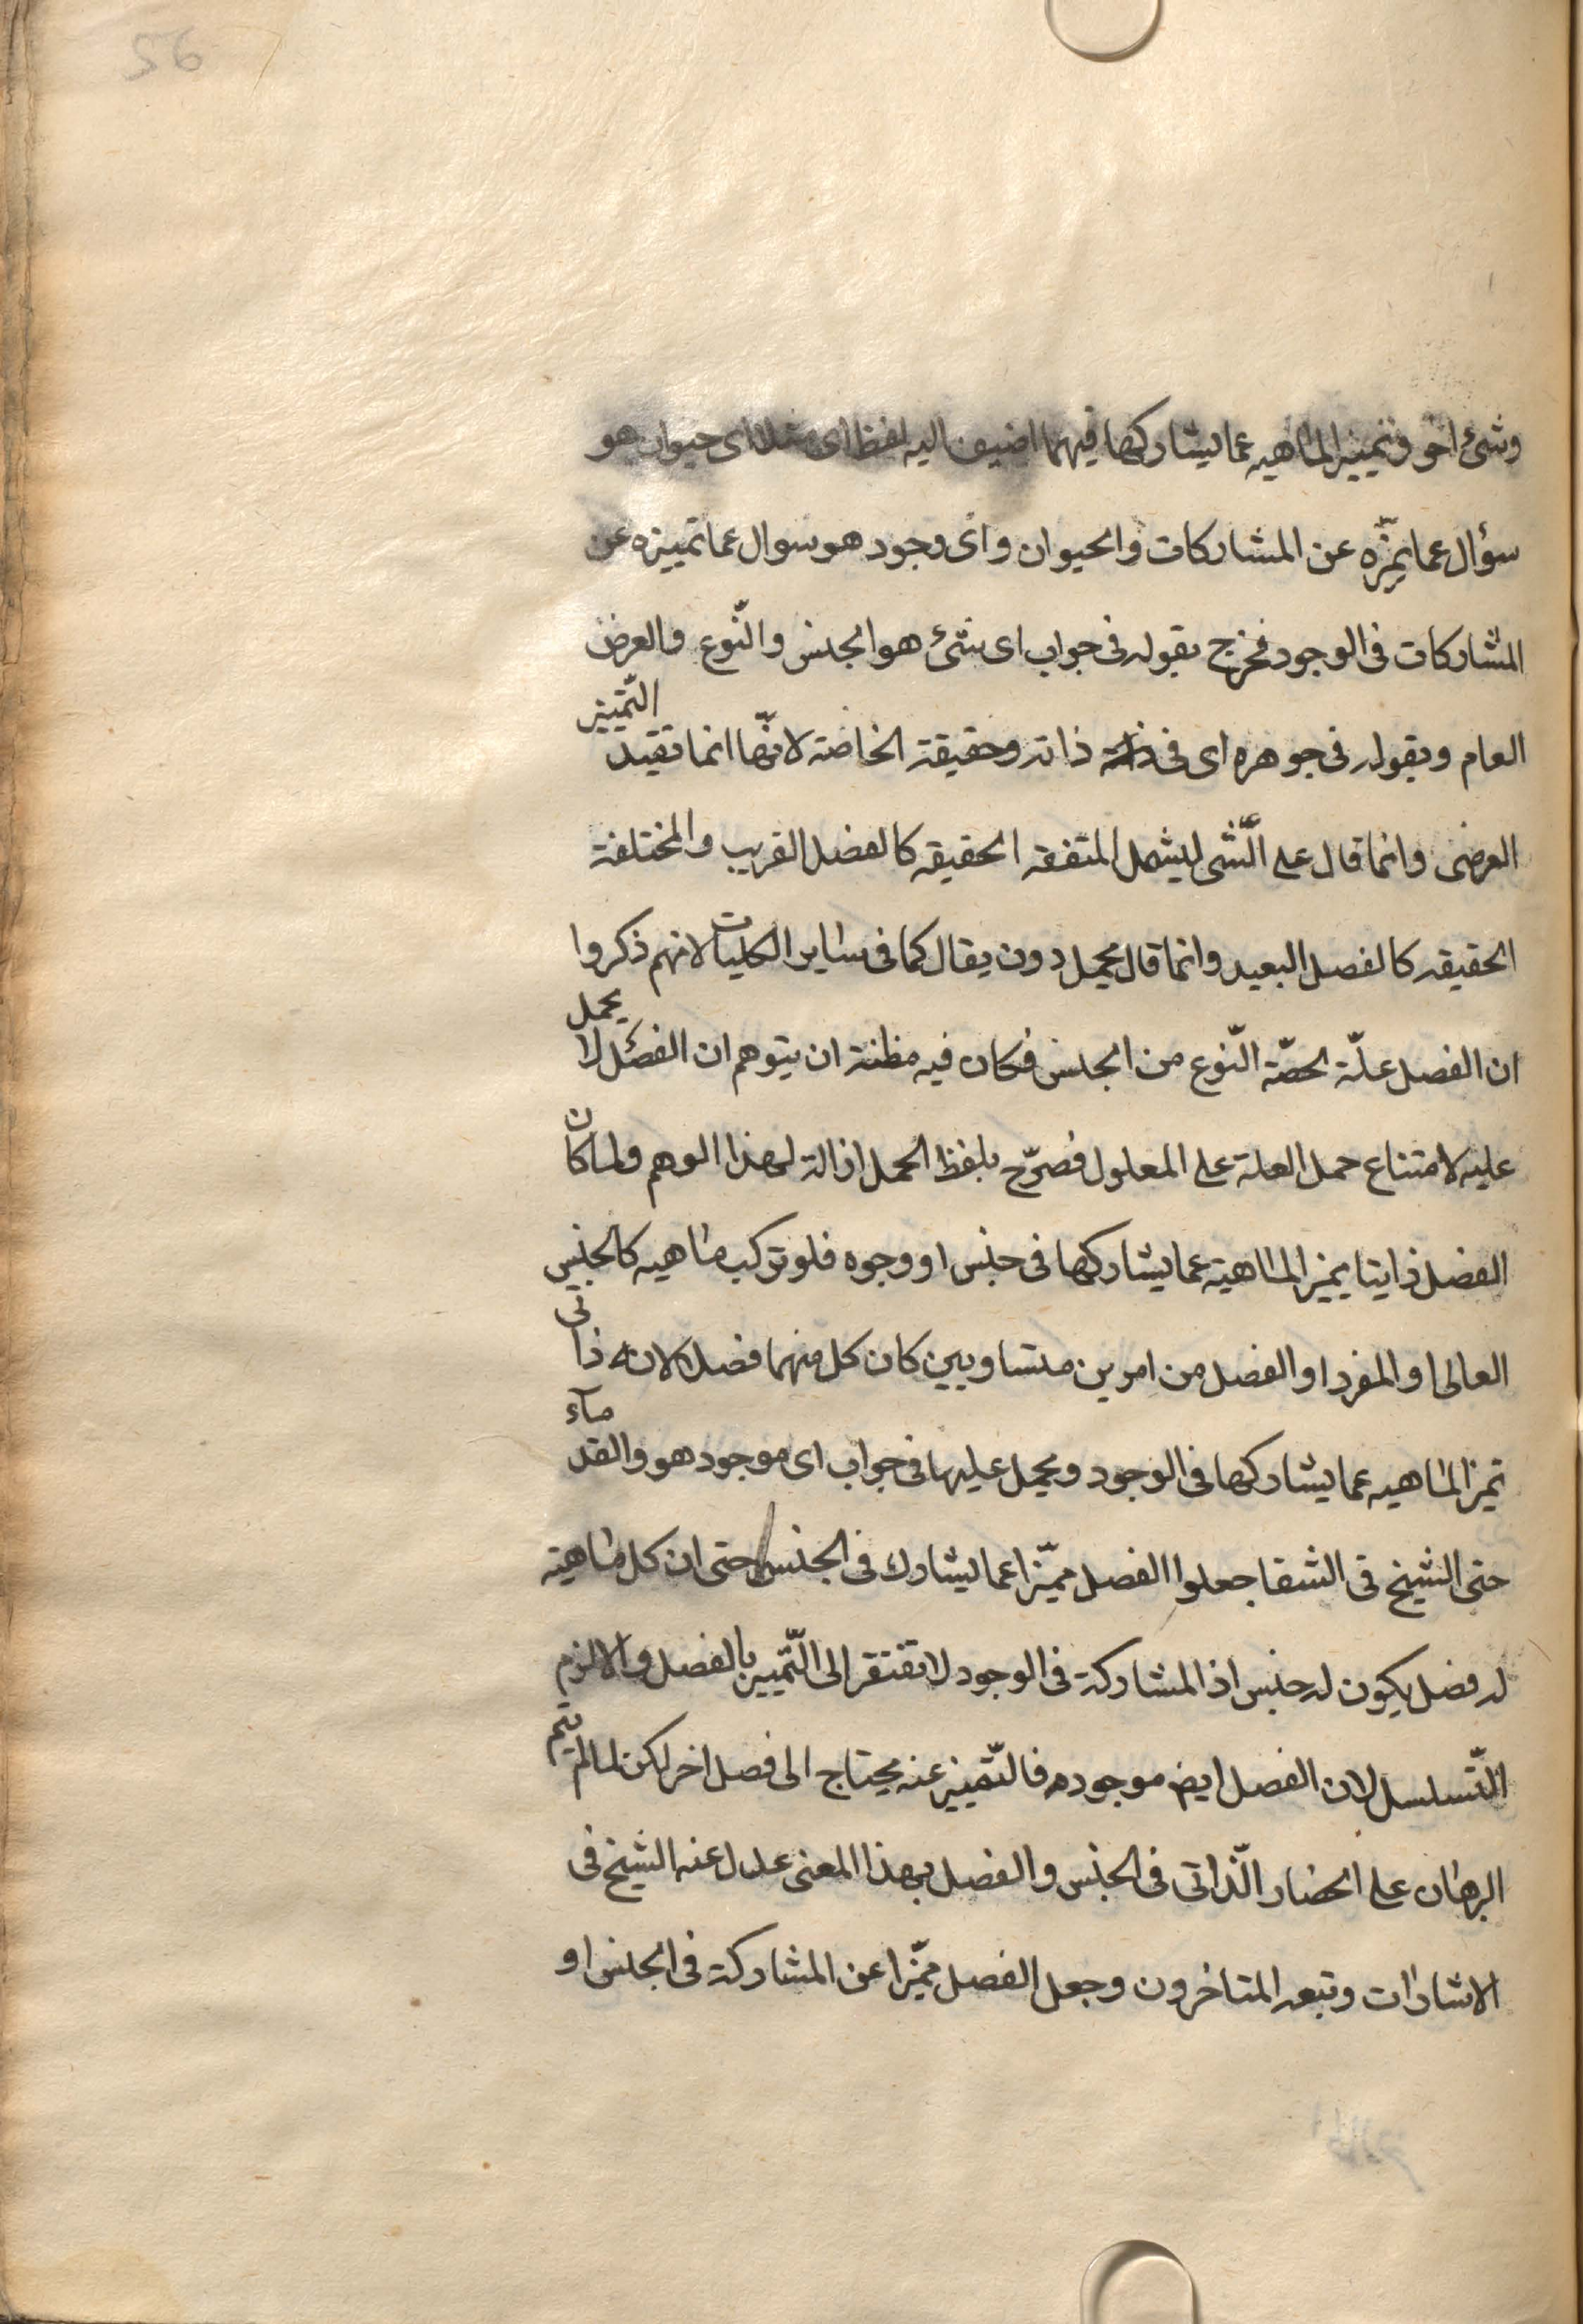 56
وشئ اخر وتمييز الماهيه عما يشاركها فيهما اضيف اليه لفظ اى مثلا اى حيوان هو
سؤال عما يميّزه عن المشاركات والحيوان واى وجود هو سوال عما تمييزه عن
المشاركات فى الوجود فخرج بقوله فى جواب اى شئ هو الجنس والنّوع والعرض
العام وبقوله فى جوهره اى فى ذاته وحقيقة الخاصة لانّها انما تفيد التّمييز
العرضى وانما قال على الشّى ليشمل المتفقه الحقيقه كالفصل القريب والمختلفة
الحقيقه كالفصل البعيد وانما قال يحمل دون يقال كما فى ساير الكليات لانهم ذكروا
ان الفصل علّة لحصّة النّوع من الجنس فكان فيه مظنة ان يتوهم ان الفصل لا يحمل
عليه لامتناع حمل العلة على المعلول فصرّح بلفظ الحمل ازالة لهذا الوهم ولما كان
الفصل ذايتا يميز الماهية عما يشاركها فى جنس او وجوه فلو تركب ماهيه كالجنس
العالى او المفرد او الفصل من امرين متساويين كان كل منهما فصلا لانه ذاتى
تميز الماهيه عما يشاركها فى الوجود ويحمل عليها فى جواب اى موجود هو والقدمآء
حتى الشيخ فى الشفا جعلوا الفصل مميّزا عما يشارك فى الجنس حتى ان كل ماهية
له فصل يكون له جنس اذ المشاركة فى الوجود لا تفتقر الى التّمييز بالفصل والا لزم
التّسلسل لان الفصل ايض موجود فالتّمييز عنه يحتاج الى فصل اخر لكن لما لم يتم
البرهان على انحصار الذّاتى فى الجنس والفصل بهذا المعنى عدل عنه الشيخ فى
الاشارات وتبعه المتاخرون وجعل الفصل مميّزا عن المشاركة فى الجنس او